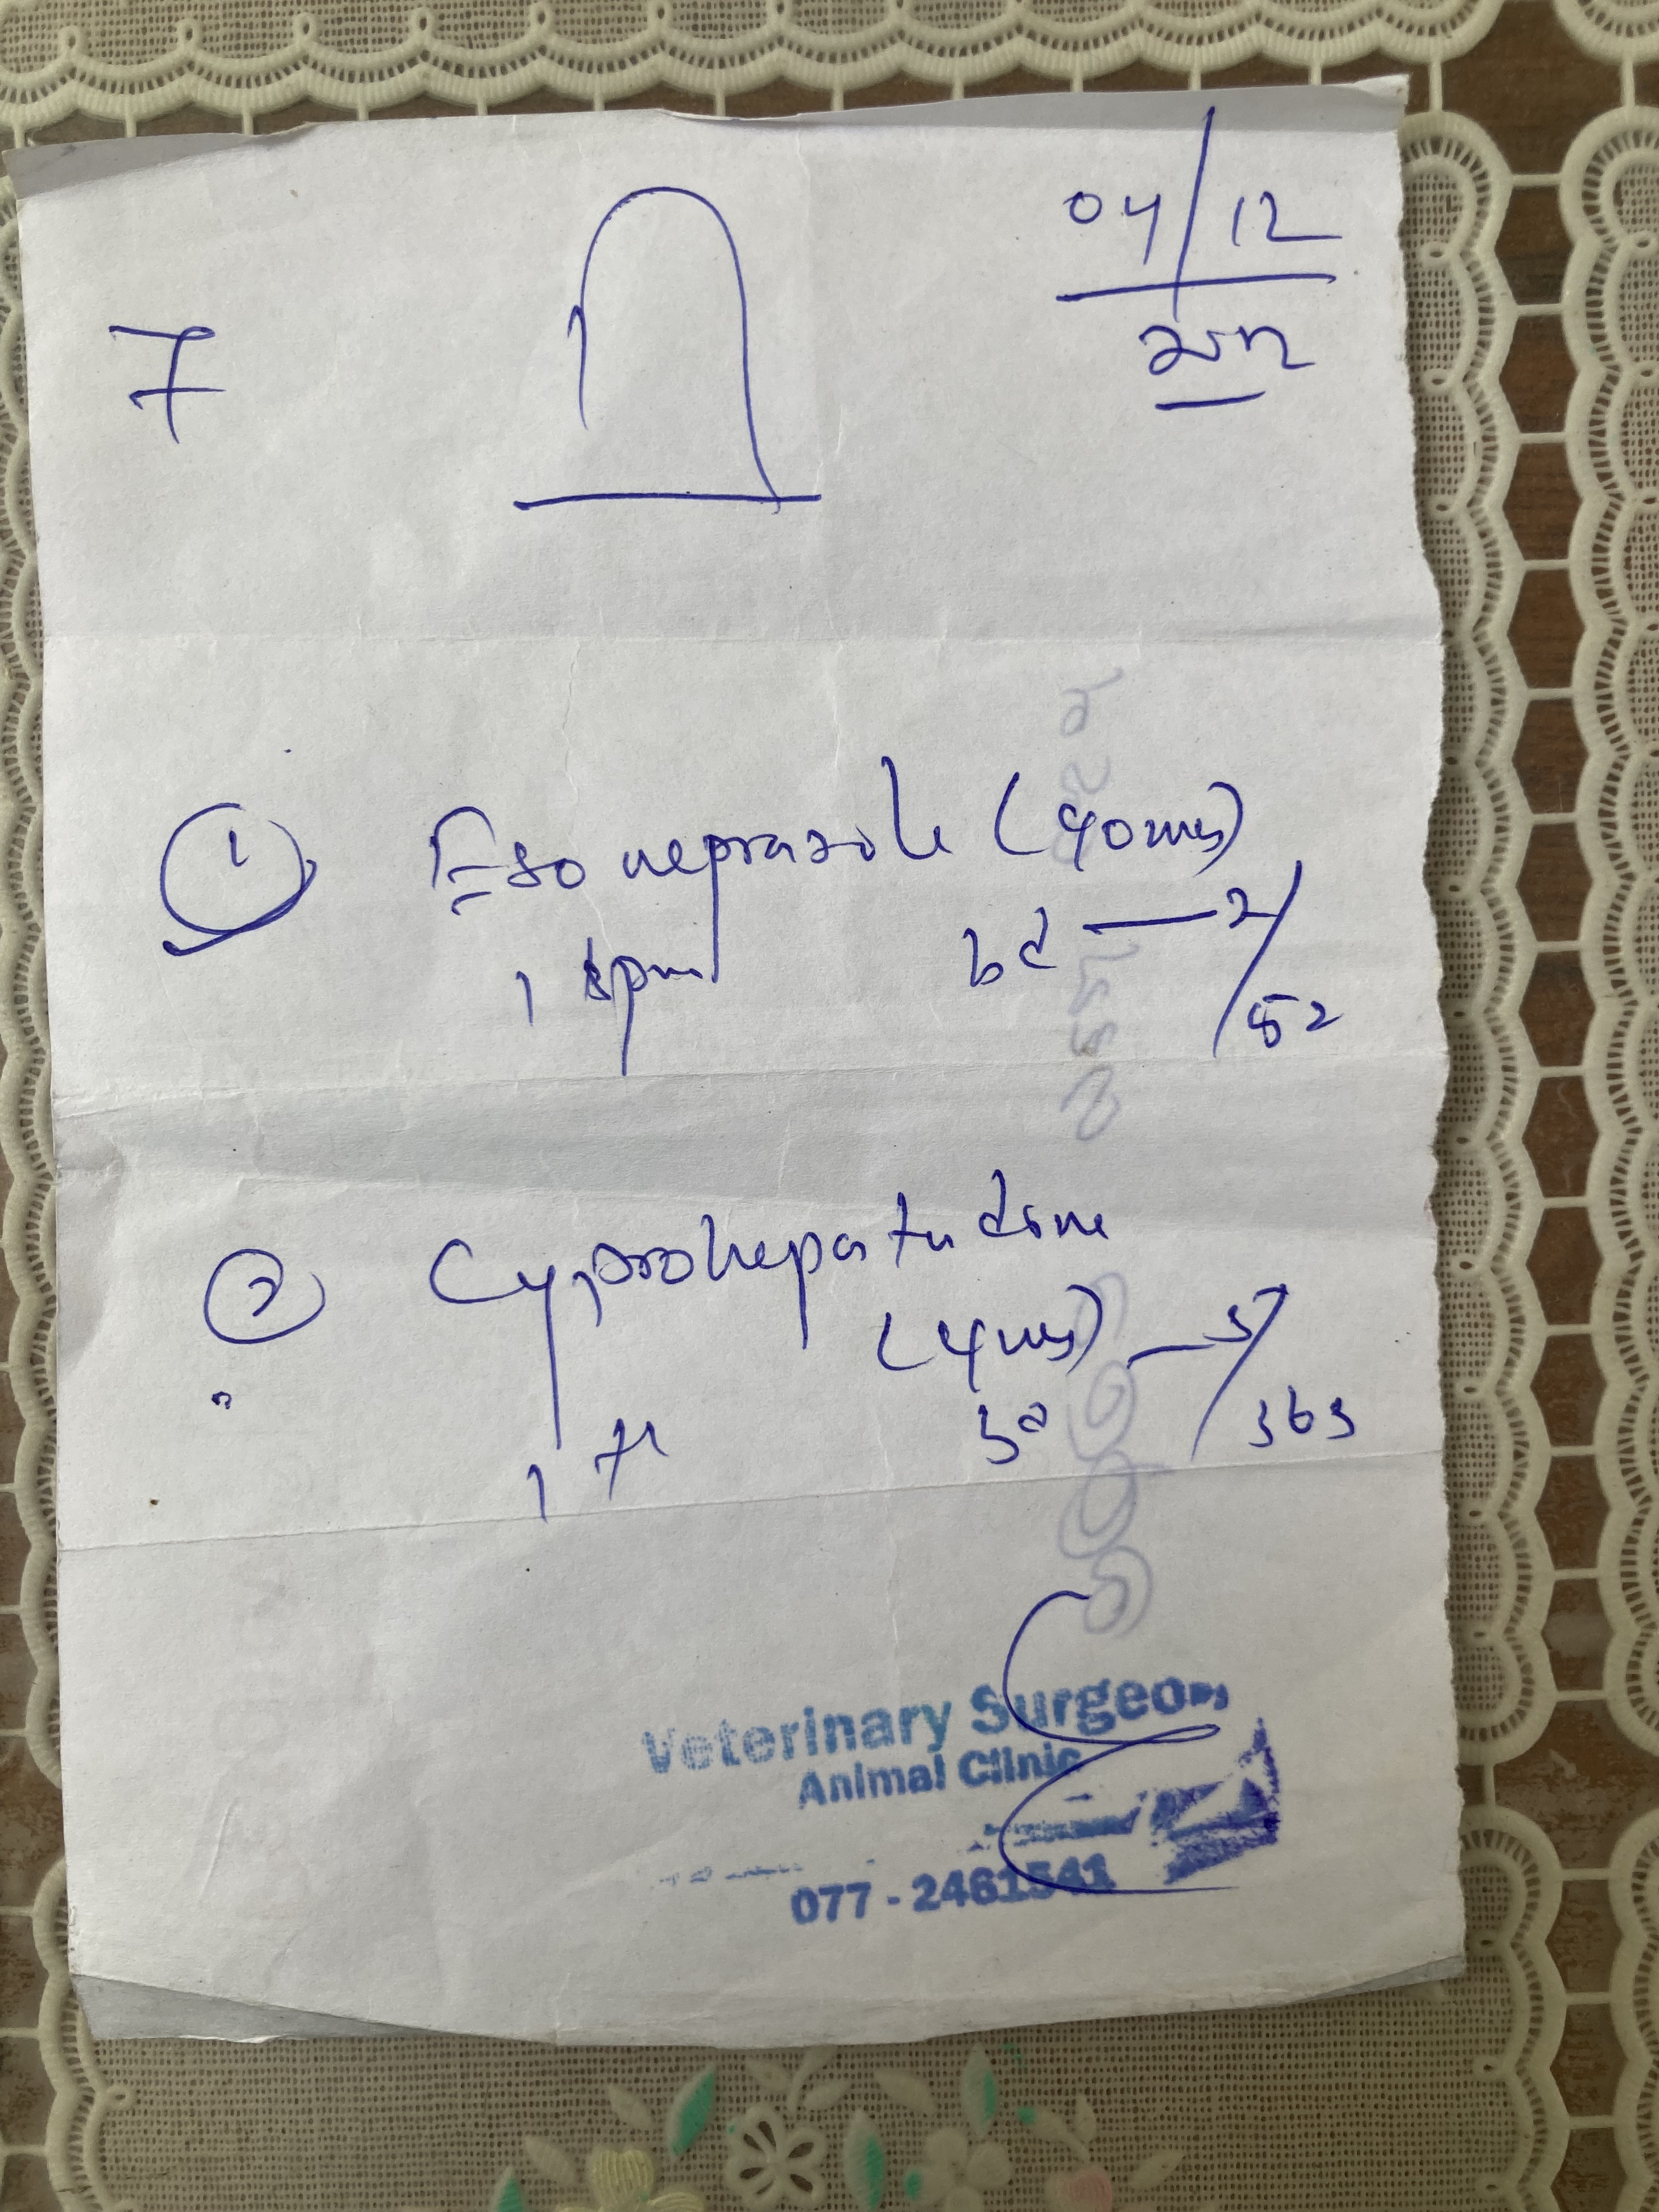 04/12
7
① Esomeprazole (40mg)
1 bd — 2/52
② Cyproheptadine
(4mg) — 5/365
1 bd
Veterinary Surgeon
Animal Clinic
077 - 2461541